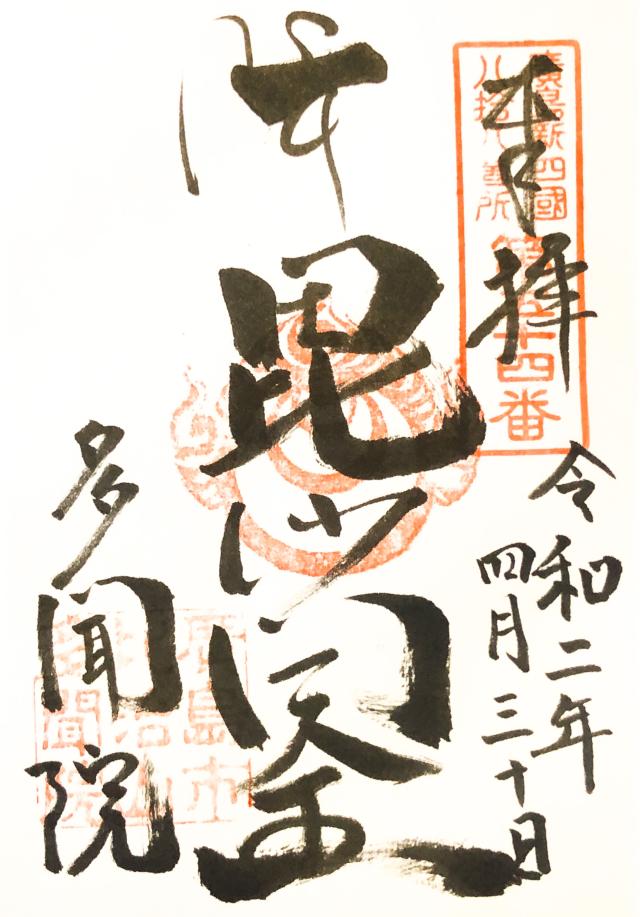 奉拝
廣島新四國
八拾八ヶ所
第五十四番
令和二年
四月三十日
毘沙門天
多聞院
廣島市
多聞院